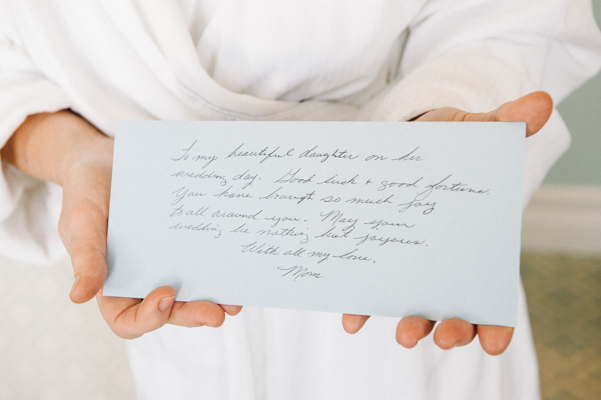 To my beautiful daughter on her
wedding day. Good luck + good fortune.
You have brougt so much joy
to all around you. May your
wedding be nothing but joyous.
With all my love.
Mom